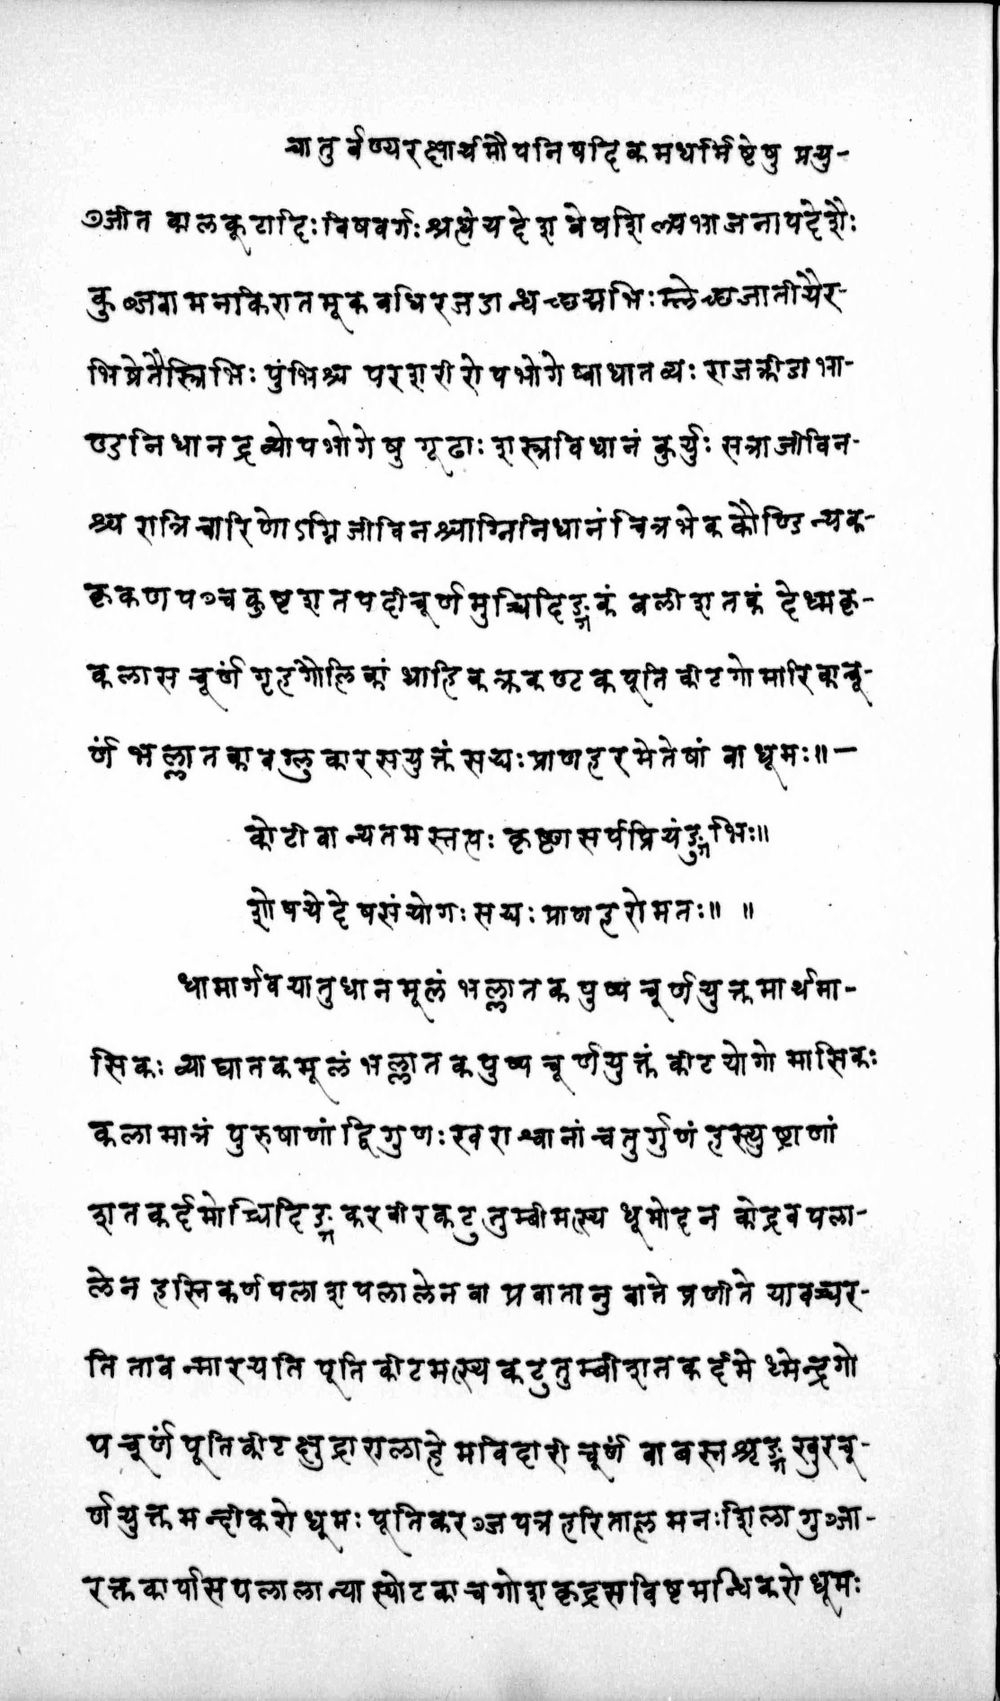 चातुर्वर्ण्यरक्षार्थमौपनिषदिकमधर्मिष्ठेषु प्रयु-
ञ्जीत कालकूटादिः विषवर्गः श्रद्धेयदेशवेषशिल्पभाजनापदेशैः
कुब्जवामनकिरातमूकबधिरजडान्धच्छद्मभिः म्लेच्छजातीयैर-
भिप्रेतैस्त्रिभिः पुंभिश्च परशरीरोपभोगेष्वाधातव्यः राजक्रीडाभा-
ण्डनिधानद्रव्योपभोगेषु गूढाः शस्त्रविधानं कुर्युः सत्राजीविन-
श्च रात्रिचारिणोऽग्निजीविनश्चाग्निनिधानं चित्रभेककौण्डिन्यक-
कृकणपञ्चकुष्ठशतपदीचूर्णमुच्चिदिङ्गकं बलीशतकं देध्मकृ-
कलासचूर्णं गृहगौलिकांधाहिकक्रकण्टकपूतिकीटगोमारिकाचू-
र्णं भल्लातकावल्गुकारसयुक्तं सद्यःप्राणहरमेतेषां वा धूमः॥—
कीटो वान्यतमस्तप्तः कृष्णसर्पप्रियंङ्गुभिः॥
शोषयेदेषसंयोगः सद्यः प्राणहरो मतः॥ ॥
धामार्गवयातुधानमूलं भल्लातकपुष्पचूर्णयुक्तमार्धमा-
सिकः व्याघातकमूलं भल्लातकपुष्पचूर्णयुक्तं कीटयोगो मासिकः
कलामात्रं पुरुषाणां द्विगुणः खराश्वानां चतुर्गुणं हस्त्युष्ट्राणां
शतकर्दमोच्चिदिङ्गकरवीरकटुतुम्बीमत्स्यधूमोदनकोद्रवपला-
लेन हस्तिकर्णपलाशपलालेन वा प्रवातानुवाते प्रणीते यावच्चर-
ति तावन्मारयति पूतिकीटमत्स्यकटुतुम्बीशतकर्दमेध्मेन्द्रगो
पचूर्णं पूतिकीटक्षुद्रारालाहेमविदारीचूर्णं वा बस्तश्रृङ्गखुरचू-
र्णयुक्तमन्धीकरो धूमः पूतिकरञ्जपत्रहरितालमनःशिलागुञ्जा-
रक्तकार्पासपलालान्यास्फोटकाचगोशकृद्रसपिष्टमन्धिकरो धूमः